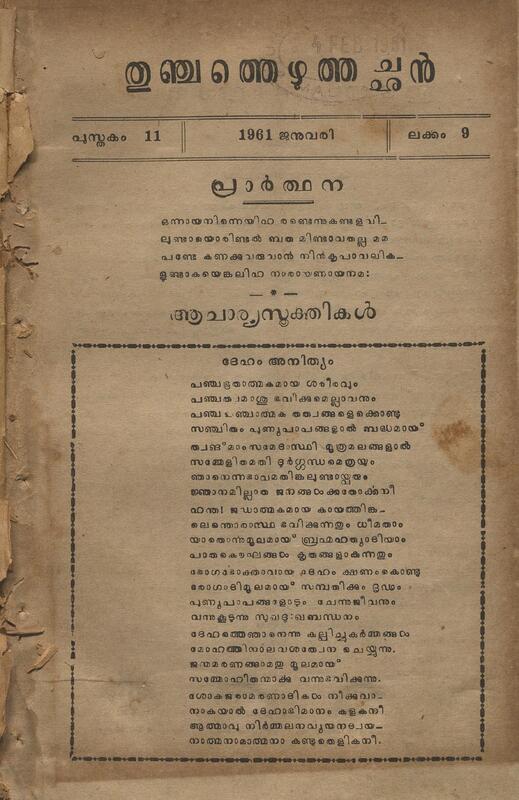 4 FEB 1961
തുഞ്ചത്തെഴുത്തച്ഛൻ
പുസ്തകം 11
1961 ജനുവരി
ലക്കം 9
പ്രാർത്ഥന
ഒന്നായനിന്നെയിഹ രണ്ടെന്നുകണ്ടളവി—
ലുണ്ടായൊരിണ്ടൽ ബത മിണ്ടാവതല്ല മമ
പണ്ടേ കണക്കുവരുവാൻ നിൻകൃപാവലിക—
ളുണ്ടാകയെങ്കലിഹ നാരായണായനമഃ
— * —
ആചാര്യസൂക്തികൾ
ദേഹം അനിത്യം
പഞ്ചഭൂതാത്മകമായ ശരീരവും
പഞ്ചത്വമാശു ഭവിക്കുമെല്ലാവനും
പഞ്ചപഞ്ചാത്മക തത്വങ്ങളെക്കൊണ്ടു
സഞ്ചിതം പുണ്യപാപങ്ങളാൽ ബദ്ധമായ്
ത്വങ്മാംസമേദോസ്ഥി മൂത്രമലങ്ങളാൽ
സമ്മേളിതമതി ദുർഗ്ഗന്ധമെത്രയും
ഞാനെന്നഭാവമതിങ്കലുണ്ടായ്വരും
ജ്ഞാനമില്ലാത ജനങ്ങൾക്കതോർക്കനീ
ഹന്ത! ജഡാത്മകമായ കായത്തിങ്ക—
ലെന്തൊരാസ്ഥ ഭവിക്കുന്നതും ധീമതാം
യാതൊന്നുമൂലമായ് ബ്രഹ്മഹത്യാദിയാം
പാതകൌഘങ്ങൾ കൃതങ്ങളാകുന്നതും
ഭോഗഭോക്താവായ ദേഹം ക്ഷണംകൊണ്ടു
രോഗാദിമൂലമായ് സമ്പതിക്കും ദൃഢം
പുണ്യപാപങ്ങളോടും ചേന്നുജീവനും
വന്നുകൂടുന്നു സുഖദുഃഖബന്ധനം
ദേഹത്തെഞാനെന്നു കല്പിച്ചുകർമ്മങ്ങൾ
മോഹത്തിനാലവശത്വേന ചെയ്യുന്നു.
ജന്മമരണങ്ങളുമതു മൂലമായ്
സമ്മോഹിതന്മാക്കു വന്നുഭവിക്കുന്നു.
ശോകജരാമരണാദികൾ നീക്കുവാ—
നാകയാൽ ദേഹാഭിമാനം കളകനീ
ആത്മാവു നിർമ്മലനവ്യയനദ്വയ—
നാത്മനാമാത്മനാ കണ്ടുതെളികനീ.